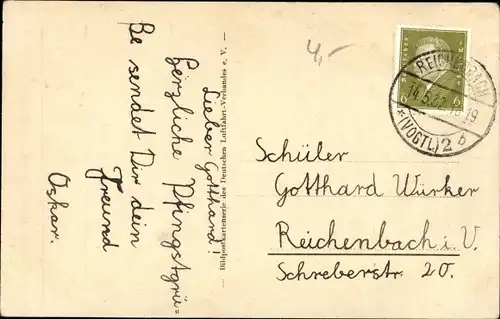 4,-
Lieber Gotthard!
Herzliche Pfingstgrü-
ße sendet Dir dein
Freund
Oskar.
Bildpostkartenserie des Deutschen Luftfahrt-Verbandes e. V.
REICHENBACH
14.5.32 18-19
(VOGTL) 2 b
6
Schüler
Gotthard Würker
Reichenbach i. V.
Schreberstr. 20.